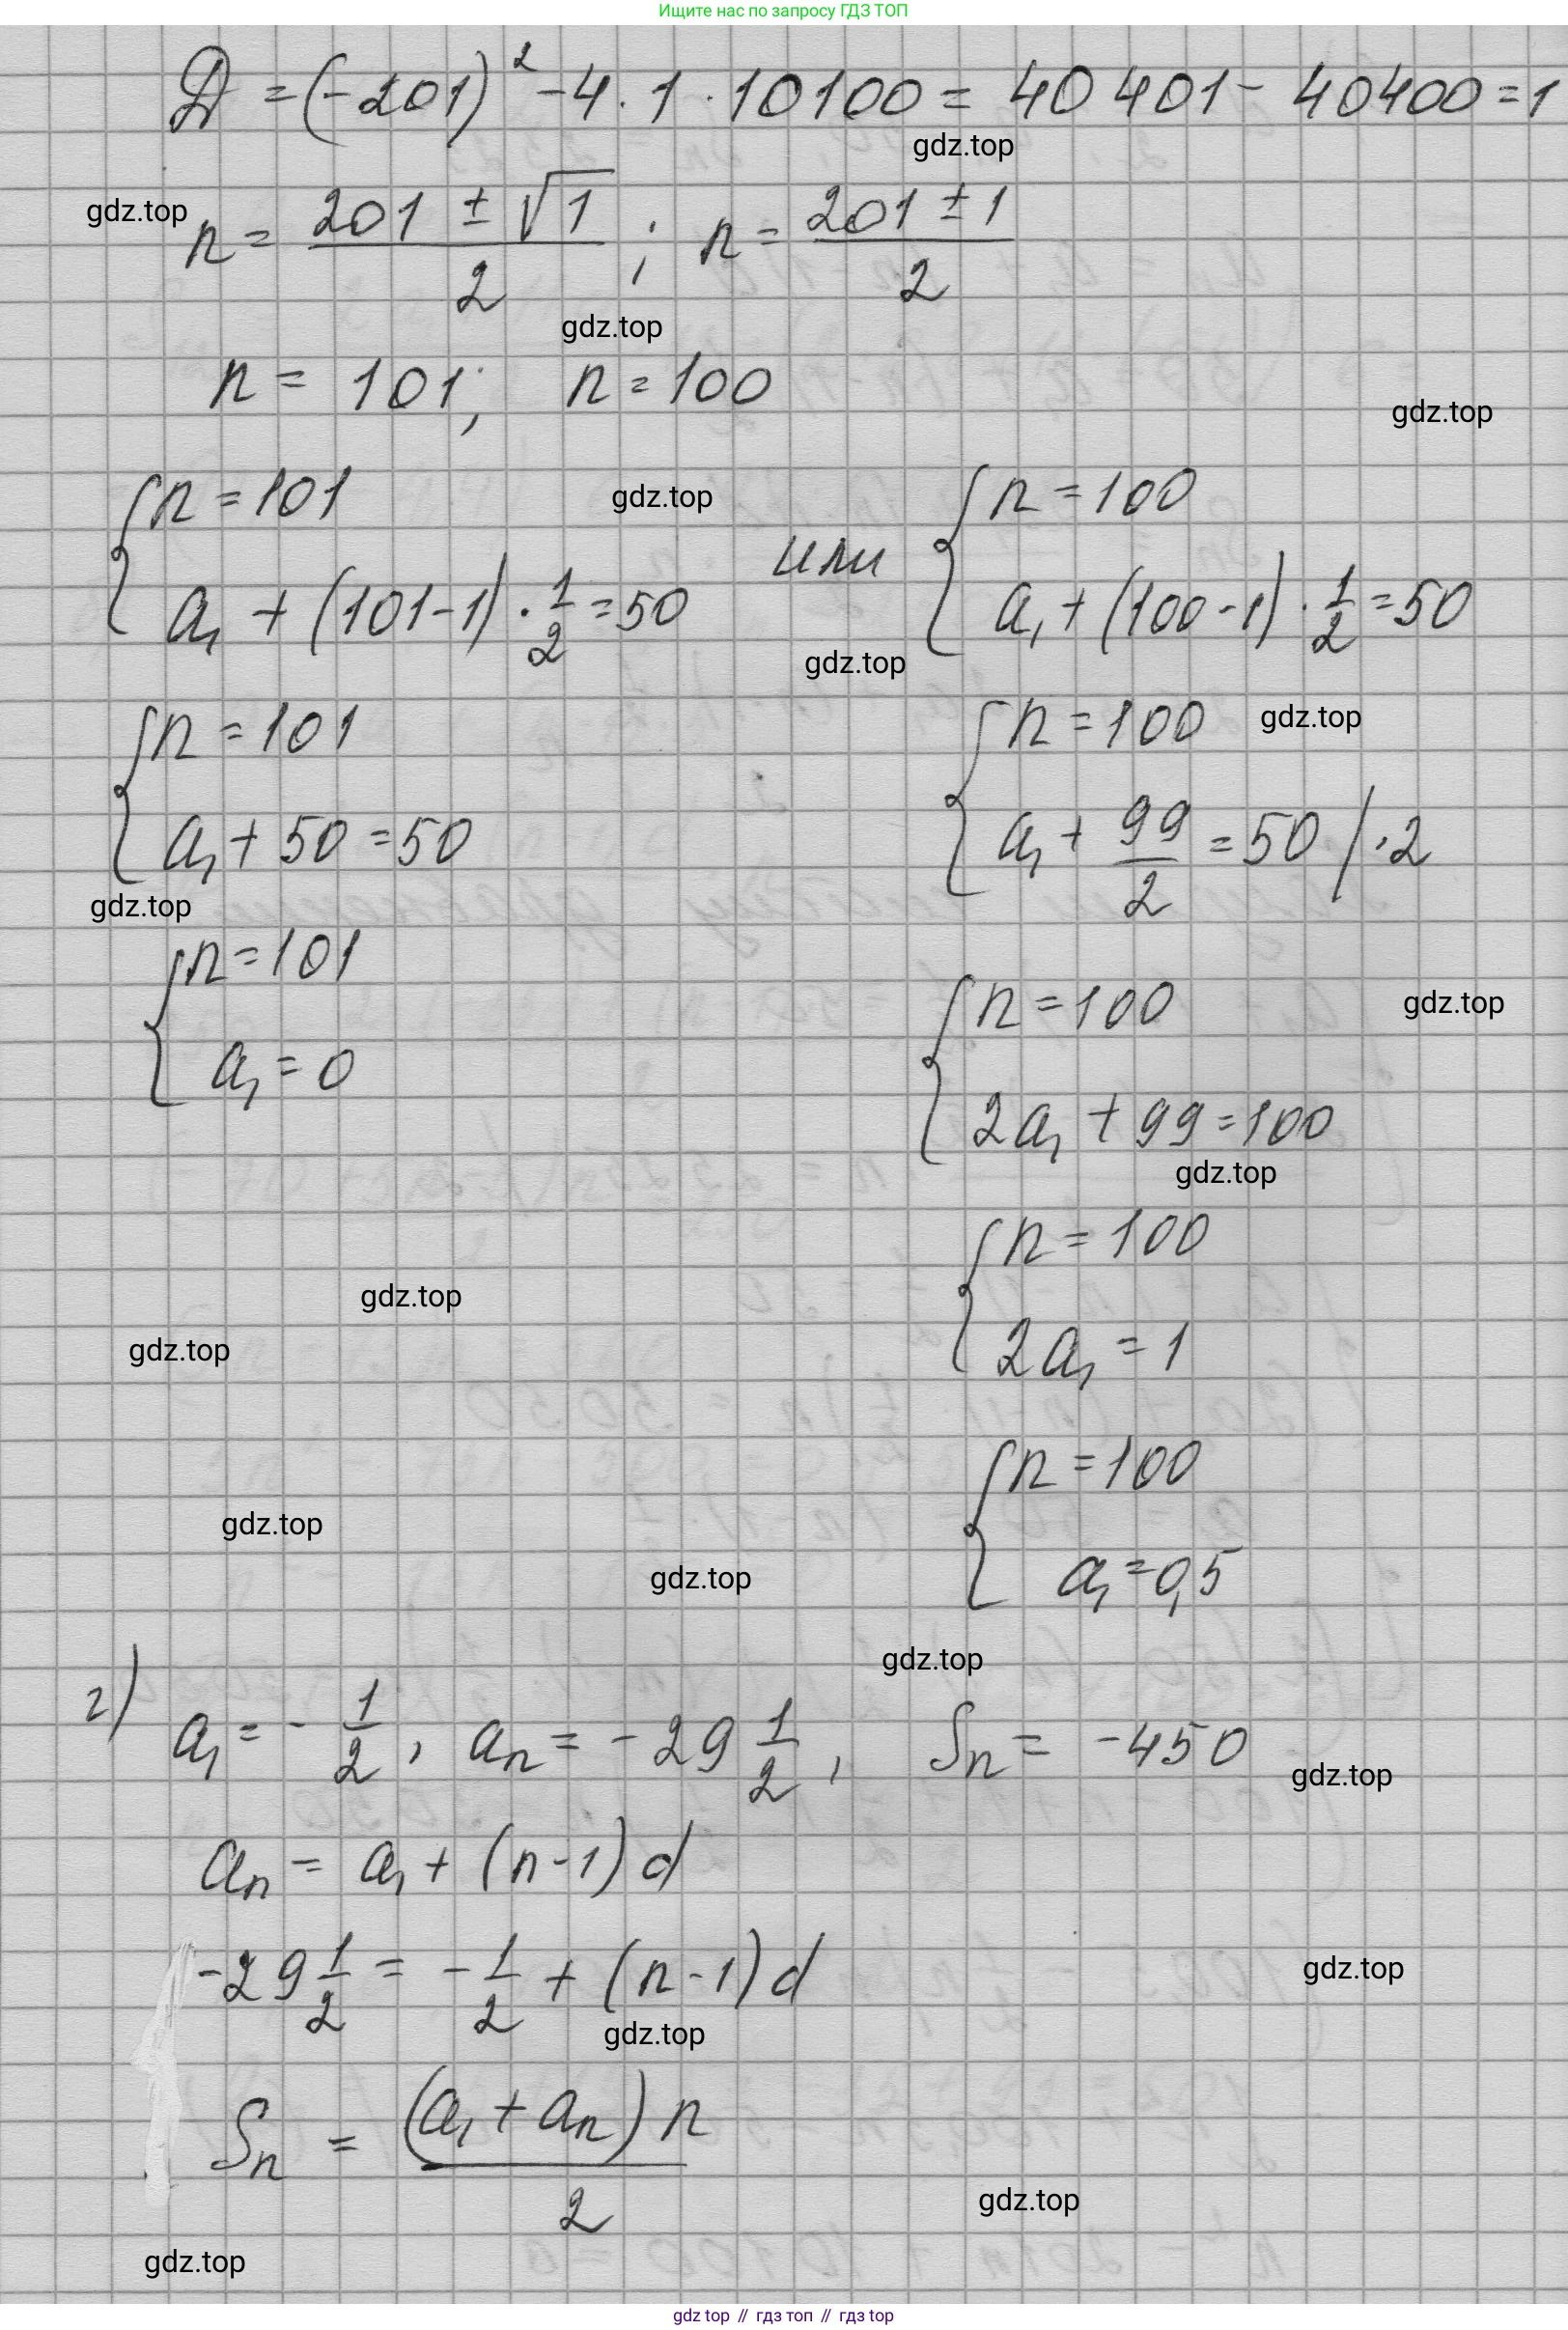 Ищите нас по запросу ГДЗ ТОП
Д = (-201)² - 4 · 1 · 10100 = 40 401 - 40400 = 1
gdz.top
gdz.top
n = (201 ± √1)/2 ; n = (201 ± 1)/2
gdz.top
n = 101; n = 100
gdz.top
{ n = 101 gdz.top { n = 100
a₁ + (101-1) · 1/2 = 50 или a₁ + (100-1) · 1/2 = 50
gdz.top
{ n = 101 { n = 100 gdz.top
a₁ + 50 = 50 a₁ + 99/2 = 50 / ·2
gdz.top
{ n = 101 { n = 100 gdz.top
a₁ = 0 2a₁ + 99 = 100
gdz.top
{ n = 100
gdz.top
gdz.top 2a₁ = 1
{ n = 100
gdz.top
gdz.top a₁ = 0,5
gdz.top
г) a₁ = - 1/2, aₙ = - 29 1/2, Sₙ = -450
gdz.top
aₙ = a₁ + (n-1) d
-29 1/2 = - 1/2 + (n-1) d gdz.top
gdz.top
Sₙ = (a₁ + aₙ) n / 2
gdz.top
gdz.top
gdz top // гдз топ // гдз top